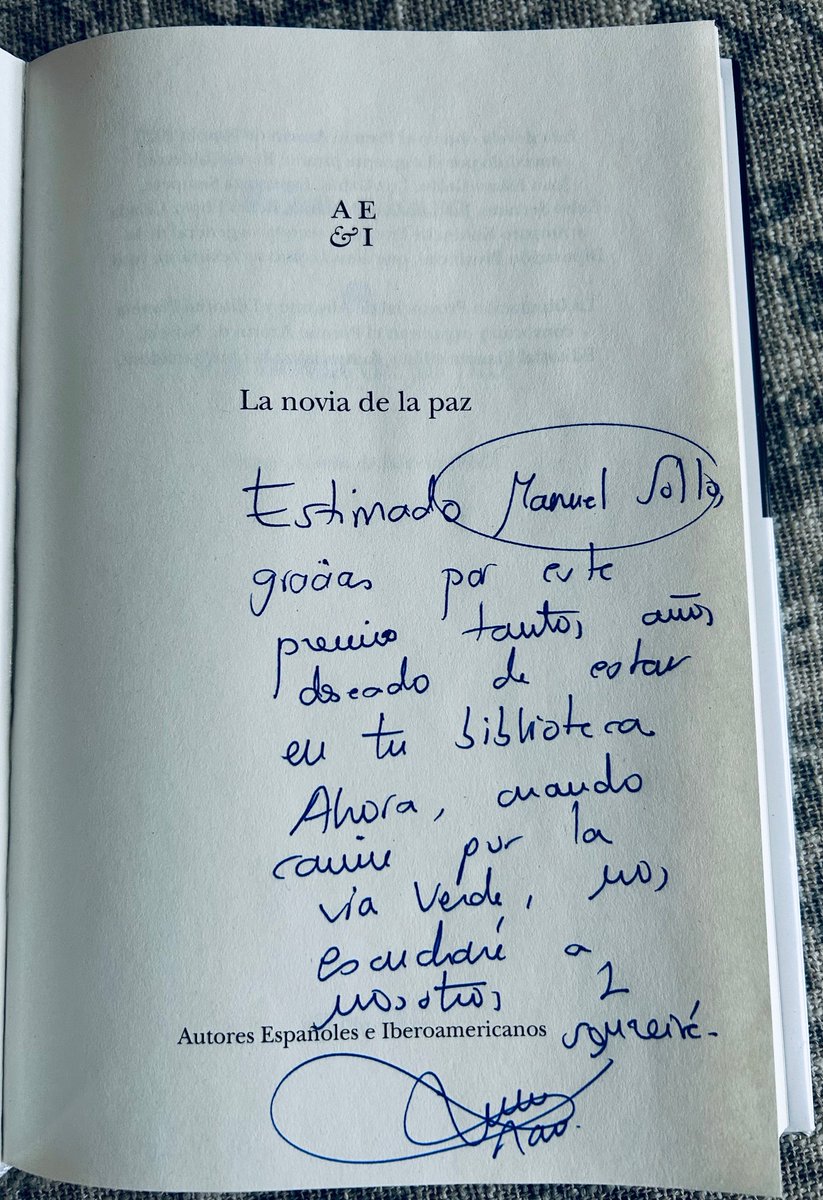 A E
& I
La novia de la paz
Estimado Manuel Sollo,
gracias por este
premio tantos años
deseado de estar
en tu biblioteca
Ahora, cuando
camine por la
vía Verde, nos
escucharé a
nosotros 2
Autores Españoles e Iberoamericanos